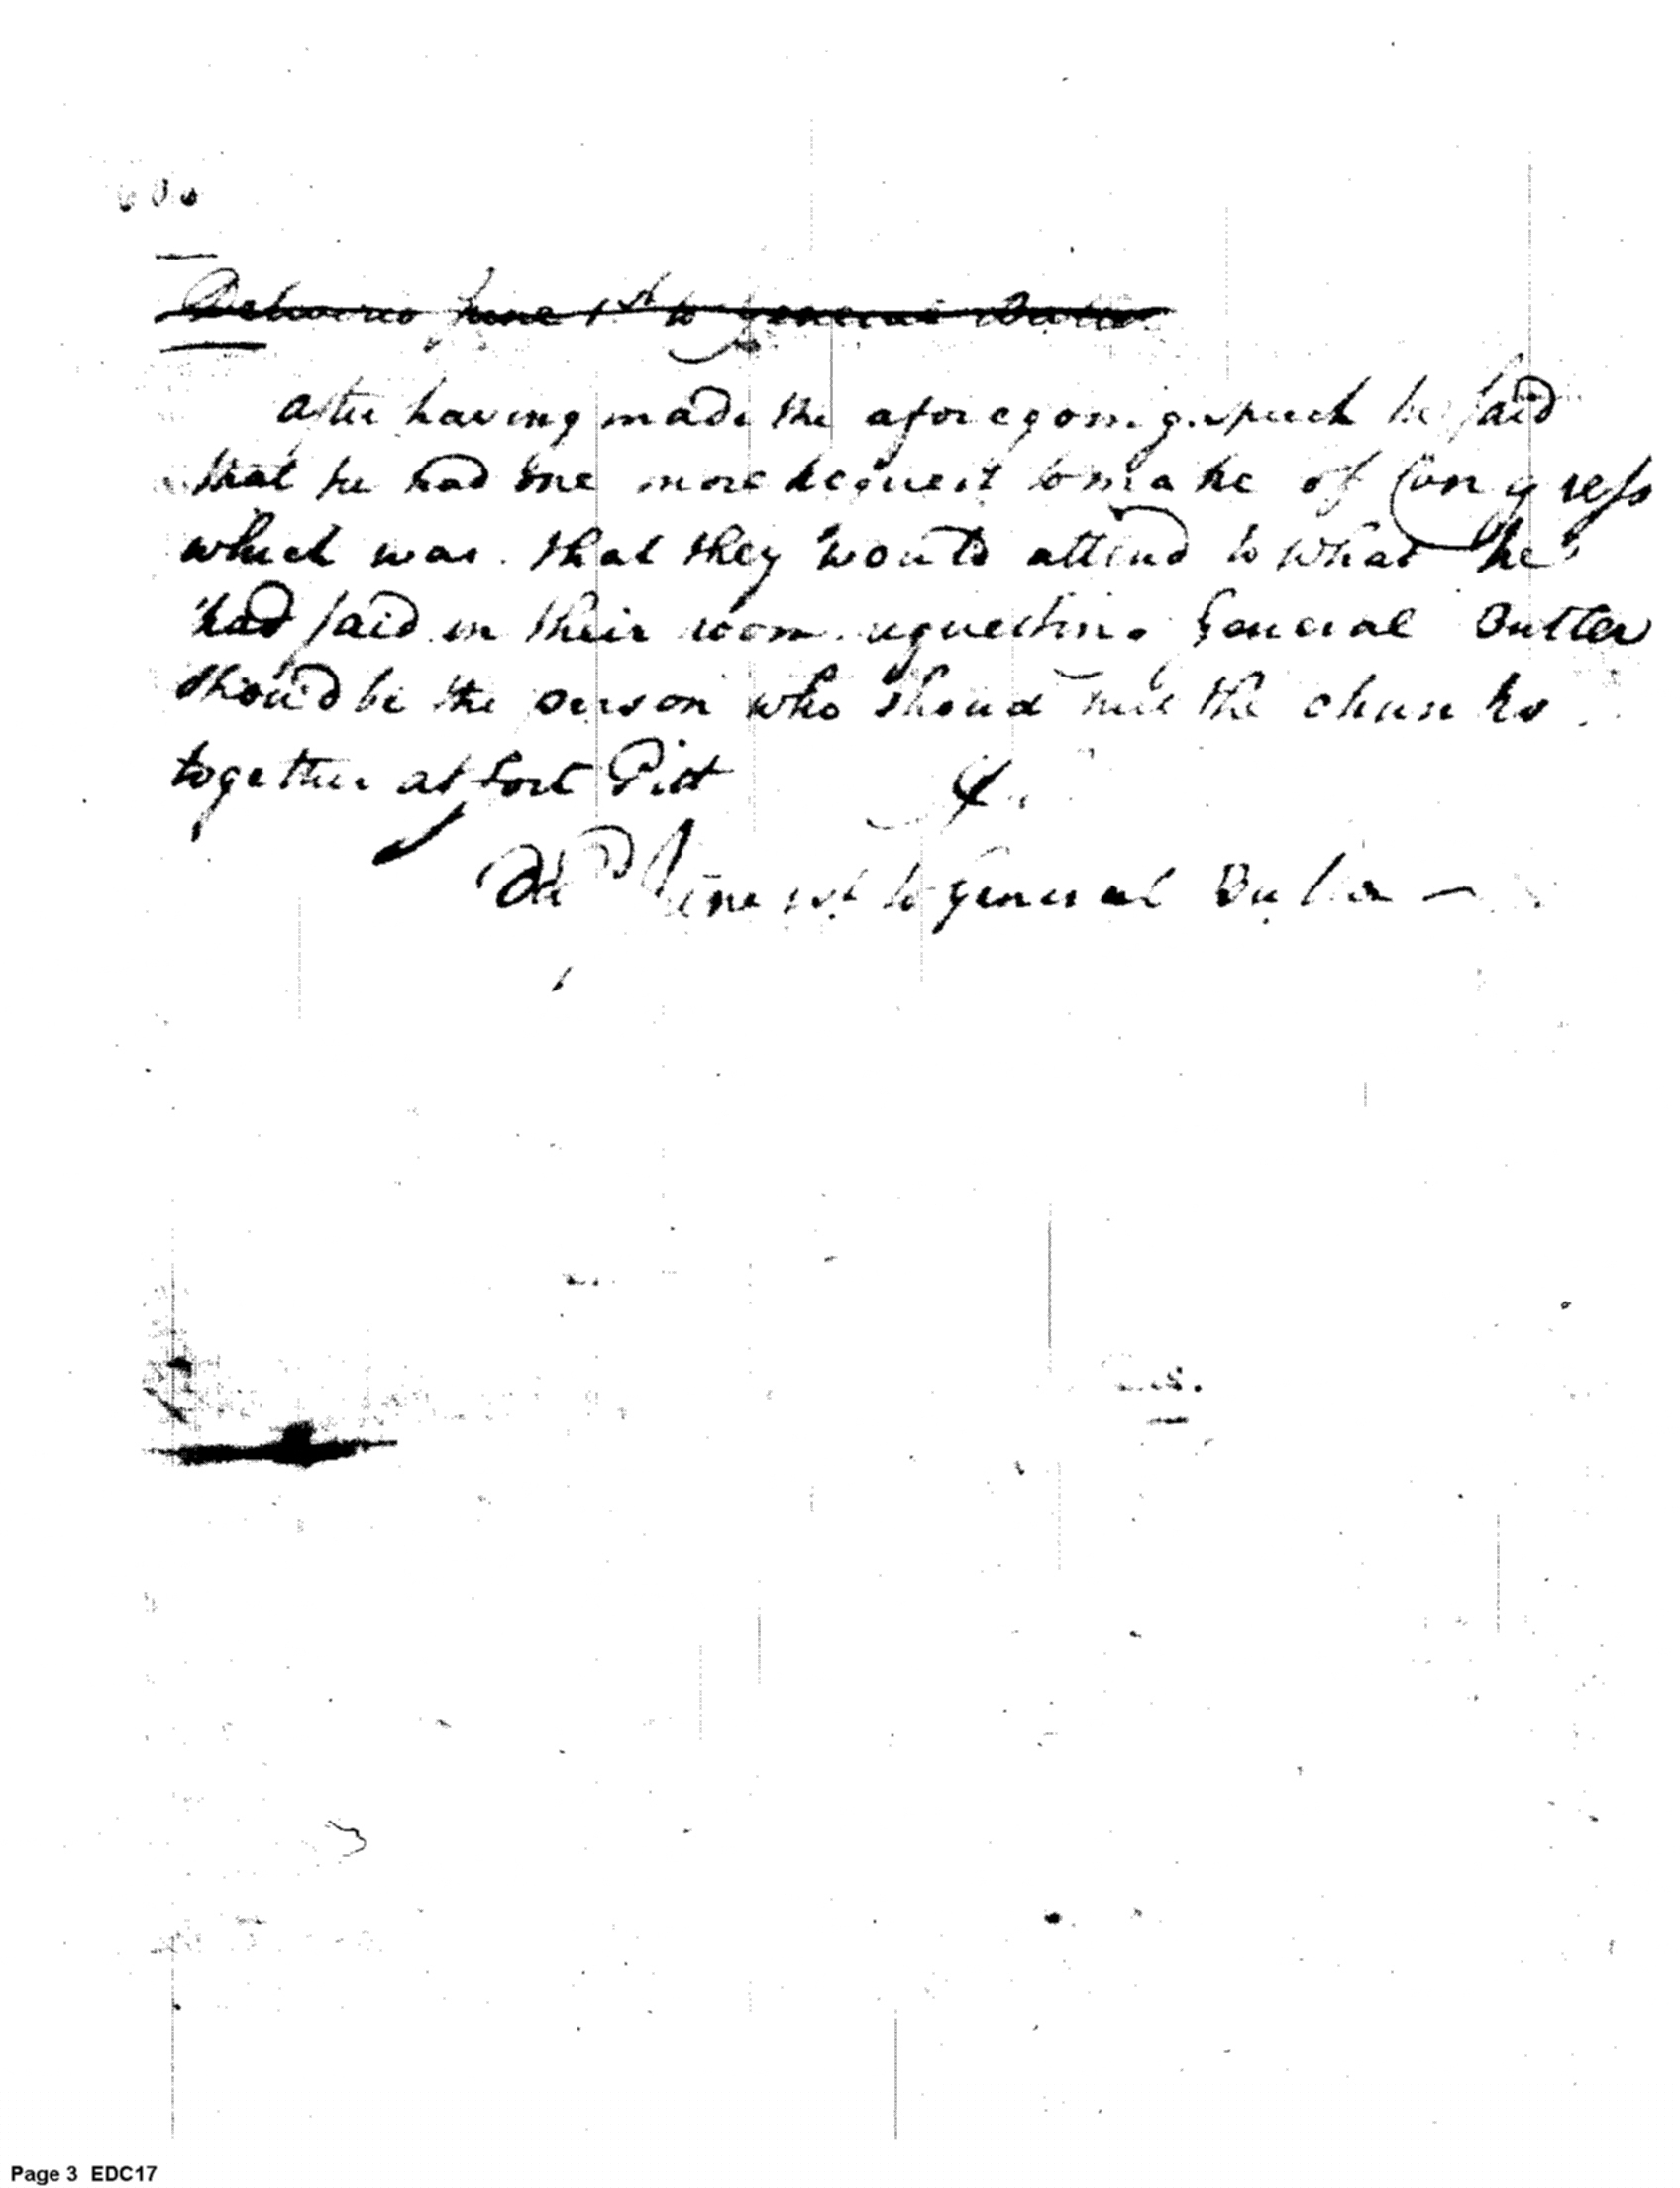 Delivered June 1st to general Butler
after having made the aforegoing speech he said
that he had one more request to make of Congress
which was that they would attend to what he
had said in their room requesting General Butler
should be the person who should the chunks
together at Fort Pitt &c
Deld June 1st to general Butler —
Page 3 EDC17